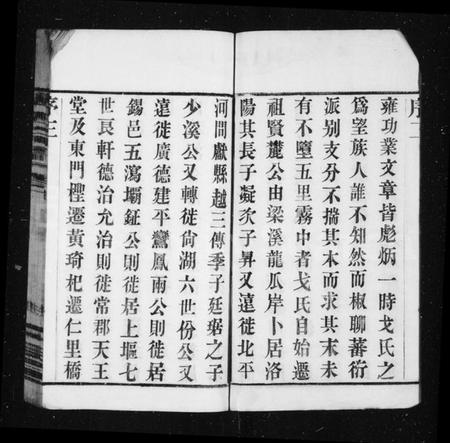 序二
雍功業文章皆彪炳一時戈氏之
為望族人誰不知然而椒聊蕃衍
派別支分不揣其本而求其末未
有不墮五里霧中者戈氏自始遷
祖賢麓公由梁溪龍瓜岸卜居洛
陽其長子凝次子昇又遠徙北平
河間獻縣越三傳季子廷弼之子
少溪公又轉徙尙湖六世份公又
遠徙廣德建平鸞鳳雨公則徙居
錫邑五瀉壩鉦公則徙居上堰七
世艮軒德治允治則徙常郡天王
堂及東門樫遷黃琦杞遷仁里橋
序三